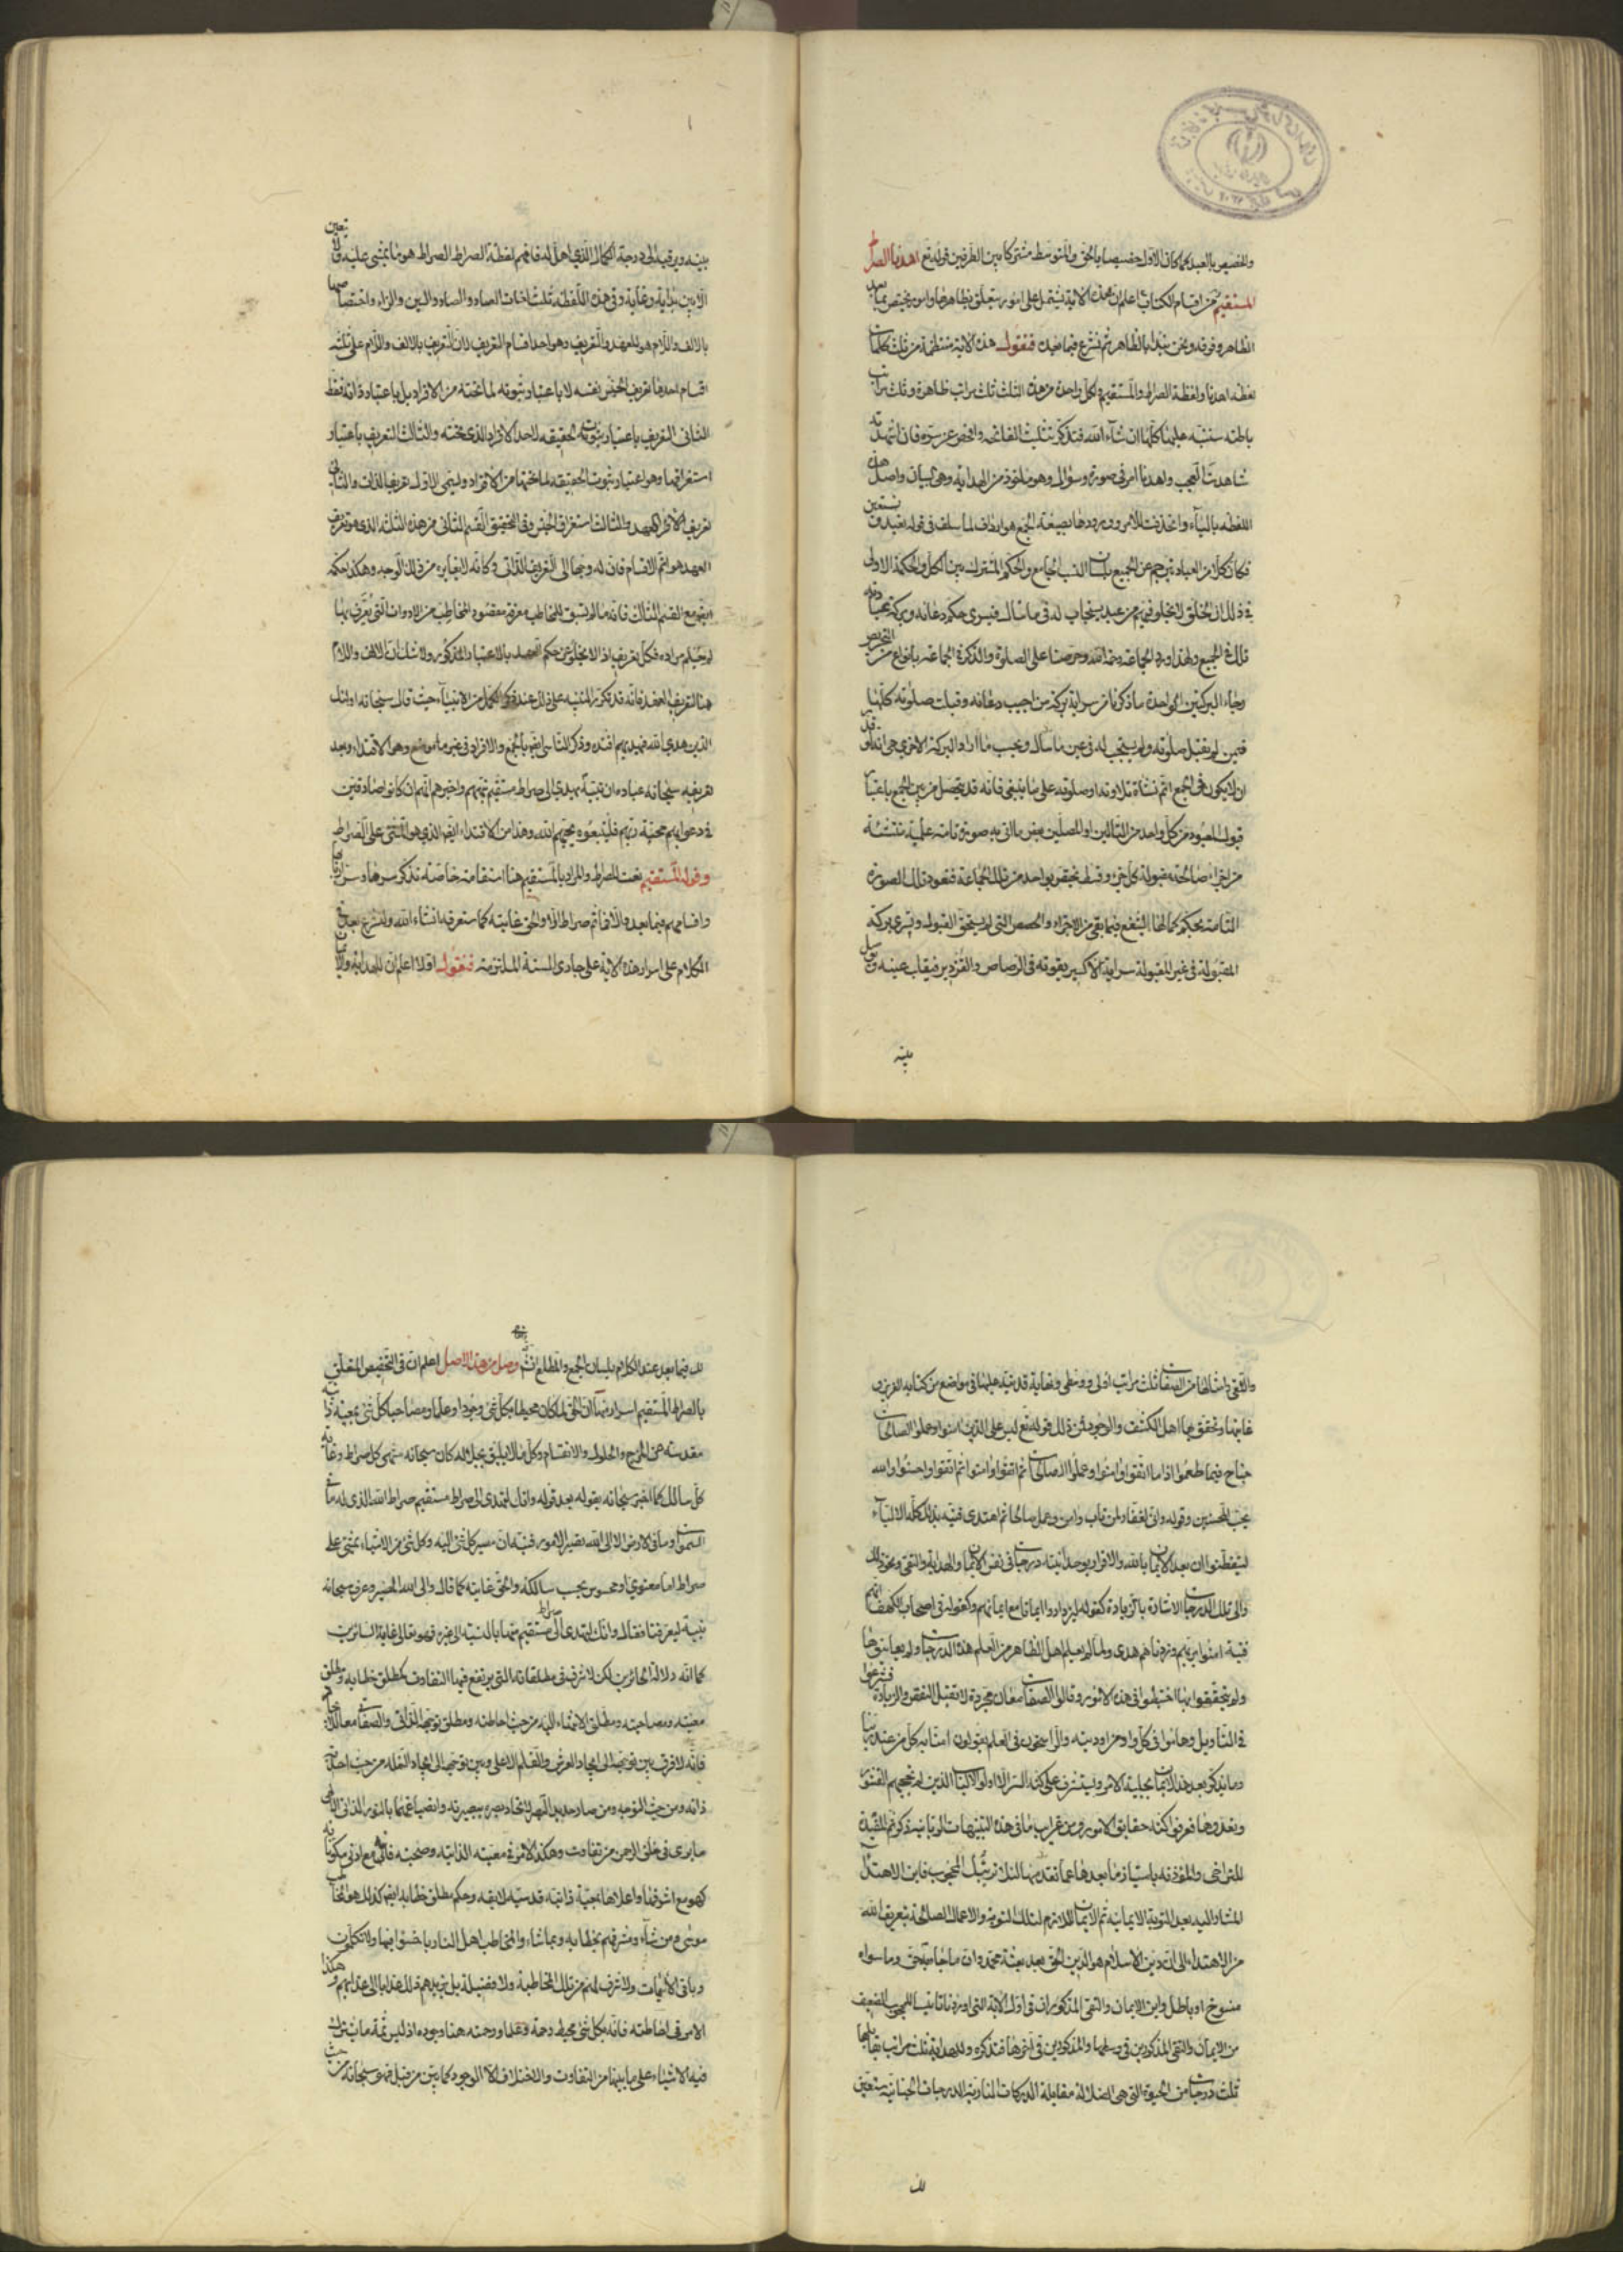 والمخصيص بالعبد كما كان الاول خصيصا بالحق والمتوسط مشتركا بين الطرفين قوله تع اهدنا الصراط
المستقيم من اقسام الكتاب اعلم ان هذه الاية تشتمل على امور يتعلق بظاهرها وامور يختص بما بعد
الظاهر وفوقه ونحن نبدا بالظاهر ثم نشرع فيما بعده فنقول هذه الاية منتظمة من ثلث كلمات
لفظة اهدنا ولفظة الصراط والمستقيم ولكل واحدة من هذه الثلث ثلث مراتب ظاهرة وثلث مراتب
باطنة سننبه عليها كلها ان شاء الله فتذكر تثليث الفاتحه وافحص عن سره فان اشهدته
شاهدت العجب واهدنا امر في صورة وسوال وهو ماخوذ من الهداية وهي البيان واصل هذه
اللفظه بالياء وانحذفت للامر وورودها بصيغة الجمع هو ارداف لما سلف في قوله نعبد ونستعين
فكان كلا من العباد يترجم عن الجميع بلسان النسب الجامع والحكم المشترك بين الكل والحكمة الاولى
في ذلك ان الخلق لا يخلو فيهم من عبد يستجاب له في ما سال فيسرى حكم دعائه وبركة
تلك في الجميع ولهذا ورد الجماعة رحمة الله وحرضنا على الصلوة والذكر في الجماعة بانواع من التحريض
رجاء البركتين الواحدة ما ذكرنا من سراية بركة من اجيب دعائه وقبلت صلوته كلها
فيمن لم يقبل صلوته ولم يستجب له في عين ما سال وبحسب ما اراد والبركة الاخرى هي انه قد
ان لا يكون في الجمع اتم نشاة تلاوته او صلوته على ما ينبغي فانه قد يتحصل من بين الجمع باعتبار
قبول المعبود من كل واحد من التالين او المصلين بعض ما اتى به صورة تامة عملية منتشئة
من اجزاء صالحة مقبولة كل جزء وقسط يختص بواحد من تلك الجماعة فتعود تلك الصورة
التامة بحكم كمالها تشفع فيما بقى من الاجزاء والحصص التي لم يستحق القبول ويسرى بركة
المقبولة في غير المقبولة سراية الاكسير بقوته في الرصاص والقزدير فيقلب عينه ويوصل
بينه
بينه ويرقيه الى درجة الكمال الذي اهل له فافهم لفظة الصراط الصراط هو ما يمشى عليه ولا
الا بين بداية وغاية وفي هذه اللفظة ثلث لغات الصاد والسين والزاء واختصاصها
بالالف واللام هو للعهد والتعريف وهو احد اقسام التعريف لان التعريف بالالف واللام على ثلثة
اقسام احدها تعريف الجنس نفسه لا باعتبار ثبوته لما تحته من الافراد بل باعتبار ذاته فقط
الثاني التعريف باعتبار ثبوت الحقيقه لاحد الافراد الذي تحته والثالث التعريف باعتبار
استغراقها وهو اعتبار ثبوت الحقيقه لما تحتها من الافراد ويسمى الاول تعريفا للذات والثاني
تعريف الامر المعهود والثالث استغراق الجنس وفي التحقيق القسم الثاني من هذه الثلثة الذي هو تعريف
العهد هو اتم الاقسام فان له وجها الى التعريف الذاتي وكانه لا يغايره من ذلك الوجه وهكذا حكمه
ايضا مع القسم الثالث فانه ما لم يسبق للمخاطب معرفة مقصود المخاطب من الادوات التي يعرف بها
لم يعلم مراده فكل تعريف اذا لا يخلو عن حكم العهد بالاعتبار المذكور ولا شك ان الالف واللام
هنا لتعريف العهد فانه قد تكرر التنبيه على ذلك عند ذكر الكمل من الانبياء حيث قال سبحانه اولئك
الذين هدى الله فبهديهم اقتده وذكر لنا سبحانه بالجمع والافراد في غير ما موضع وهو الاقتداء وبعد
تعريفه سبحانه عباده ان نبيه يهدي الى صراط مستقيم نبههم واخبرهم انهم ان كانوا صادقين
في دعواهم محبة ربهم فليتبعوه يحبهم الله وهذا من الاقتداء ايضا الذي هو المشى على الصراط
وقوله المستقيم نعت للصراط والمراد بالمستقيم هنا استقامة خاصة نذكر سرها وسر اربابها
واقسامهم فيما بعد والا فما ثم صراط الا والحق غايته كما ستعرفه انشاء الله ولنشرع بعد في
الكلام على اسرار هذه الاية على جاري السنة الملتزمة فنقول اولا اعلم ان للهداية والايمان
والتقى وامثالها من الصفات ثلث مراتب اولى ووسطى ونهاية قد نبه عليها في مواضع من كتابه العزيز
عاينها وتحقق بها اهل الكشف والوجود فمن ذلك قوله تع ليس على الذين امنوا وعملوا الصالحات
جناح فيما طعموا اذا ما اتقوا وامنوا وعملوا الصالحات ثم اتقوا وامنوا ثم اتقوا واحسنوا والله
يحب المحسنين وقوله واني لغفار لمن تاب وامن وعمل صالحا ثم اهتدى فنبه بذلك كله الالباء
ليتفطنوا ان بعد الايمان بالله والاقرار بوحدانيته درجات في نفس الايمان والهداية والتقى ونحو ذلك
والى تلك الدرجات الاشارة بالزيادة كقوله ليزدادوا ايمانا مع ايمانهم وكقوله في اصحاب الكهف انهم
فتية امنوا بربهم وزدناهم هدى ولما لم يعلم اهل الظاهر من العلم هذه الدرجات ولم يعاينوها
ولم يتحققوا بها اختبطوا في هذه الامور وقالوا الصفات معان مجردة لا تقبل النقص والزيادة فشرعوا
في التاويل وهاموا في كل واد من اوديته والراسخون في العلم يقولون امنا به كل من عند ربنا
وما يذكر بعد هذا الايمان بجلية الامر ويستشرف على كنه السر الا اولو الالباب الذين لم تحجبهم القشور
وتعدوها فعرفوا كنه حقايق الامور ومن غرايب ما في هذه التنبيهات الربانية ذكر ثم المفيدة
للتراخي والمؤذنة بامتياز ما بعدها عما تقدمها اللائي المحجوب فاين الاهتداء
المشار اليه بعد التوبة الايمانيه ثم الايمان اللازم لتلك التوبة والاعمال الصالحة بتعريف الله
من الاهتداء الى ان دين الاسلام هو الدين الحق بعد بعثة محمد وان ما جاء به حق وما سواه
منسوخ او باطل واين الايمان والتقى المذكوران في اول الاية التي اوردناها تانيسا للمحجوب الضعيف
من الايمان والتقى المذكورين في وسطها والمذكورين في اخرها فتذكره وللهداية ثلث مراتب يقابلها
ثلث درجات من الحيرة التي هي الضلالة مقابلة الدركات النارية للدرجات الجنانية ستعين
لك
لك فيما بعد عند الكلام بلسان الجمع والمطلع انشاء الله وصل من هذا الاصل اعلم ان في التخصيص المتعلق
بالصراط المستقيم اسرارا منها ان الحق لما كان محيطا بكل شئ وجودا وعلما ومصاحبا كل شئ بمعية ذاتية
مقدسة عن المزج والحلول والانقسام وكل ما لا يليق بجلاله كان سبحانه منتهى كل صراط وغاية
كل سالك كما اخبر سبحانه بقوله بعد قوله وانك لتهدى الى صراط مستقيم صراط الله الذي له ما في
السموات وما في الارض الا الى الله تصير الامور فنبه ان مصير كل شئ اليه وكل شئ من الاشياء يمشي على
صراط اما معنوي او محسوس بحسب سالكه والحق غايته كما قال والى الله المصير وعرف سبحانه
نبيه ليعرفنا فقال وانك لتهدى الى صراط مستقيم بالنسبة الى غيره فهو تعالى غاية السائرين
كما انه دلالة الحائرين لكن لا شرف في مطلقاته التي يرتفع فيها التفاوت كمطلق خطابه ومطلق
معيته ومصاحبته ومطلق الانتهاء اليه من حيث احاطته ومطلق توجهه الذاتي والصفاتي معا للايجاد
فانه لا فرق بين توجهه الى ايجاد العرش والقلم الاعلى وبين توجهه الى ايجاد النملة من حيث احدية
ذاته ومن حيث التوجه ومن صار حديد البصر لاتحاد بصره ببصيرته وانصباغهما بالنور الذاتي الالهي
ما يرى في خلق الرحمن من تفاوت وهكذا الامر في معيته الذاتية وصحبته فانه مع ادنى مكوناته
كهو مع اشرفها واعلاها بمعية ذاتية قدسية لايقه وحكم مطلق خطابه ايضا كذلك هو المخاطب
موسى ومن شاء ومشرفهم بخطابه وبما شاء والمخاطب اهل النار باخسؤا فيها ولا تكلمون
وباقي الايات ولا شرف لهم من تلك المخاطبة ولا فضيلة بل يزيدهم ذلك عذابا الى عذابهم وهكذا
الامر في احاطته فانه بكل شئ محيط رحمة وعلما ورحمته هنا وجوده اذ ليس ثمة ما يشترك
فيه الاشياء على ما بينها من التفاوت والاختلاف الا الوجود كما بين من قبل فهو سبحانه من حيث